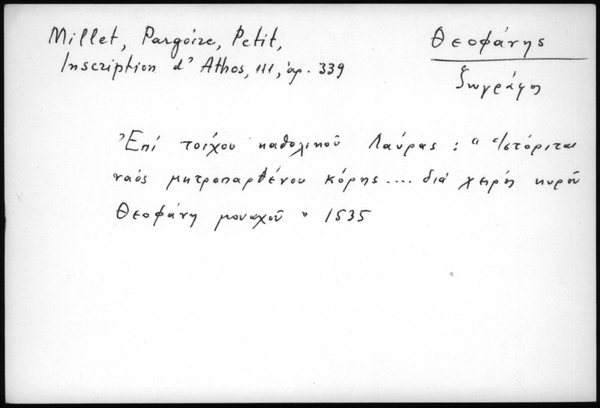 Millet, Pargoire, Petit,
Inscription d' Athos, 111, ἀρ. 339
Θεοφάνης
Ζωγράφος
Ἐπί τοίχου καθολικοῦ Λαύρας : " Ἱστόριται
ναός μητροπαρθένου κόρης .... διά χειρός κυροῦ
Θεοφάνη μοναχοῦ " 1535